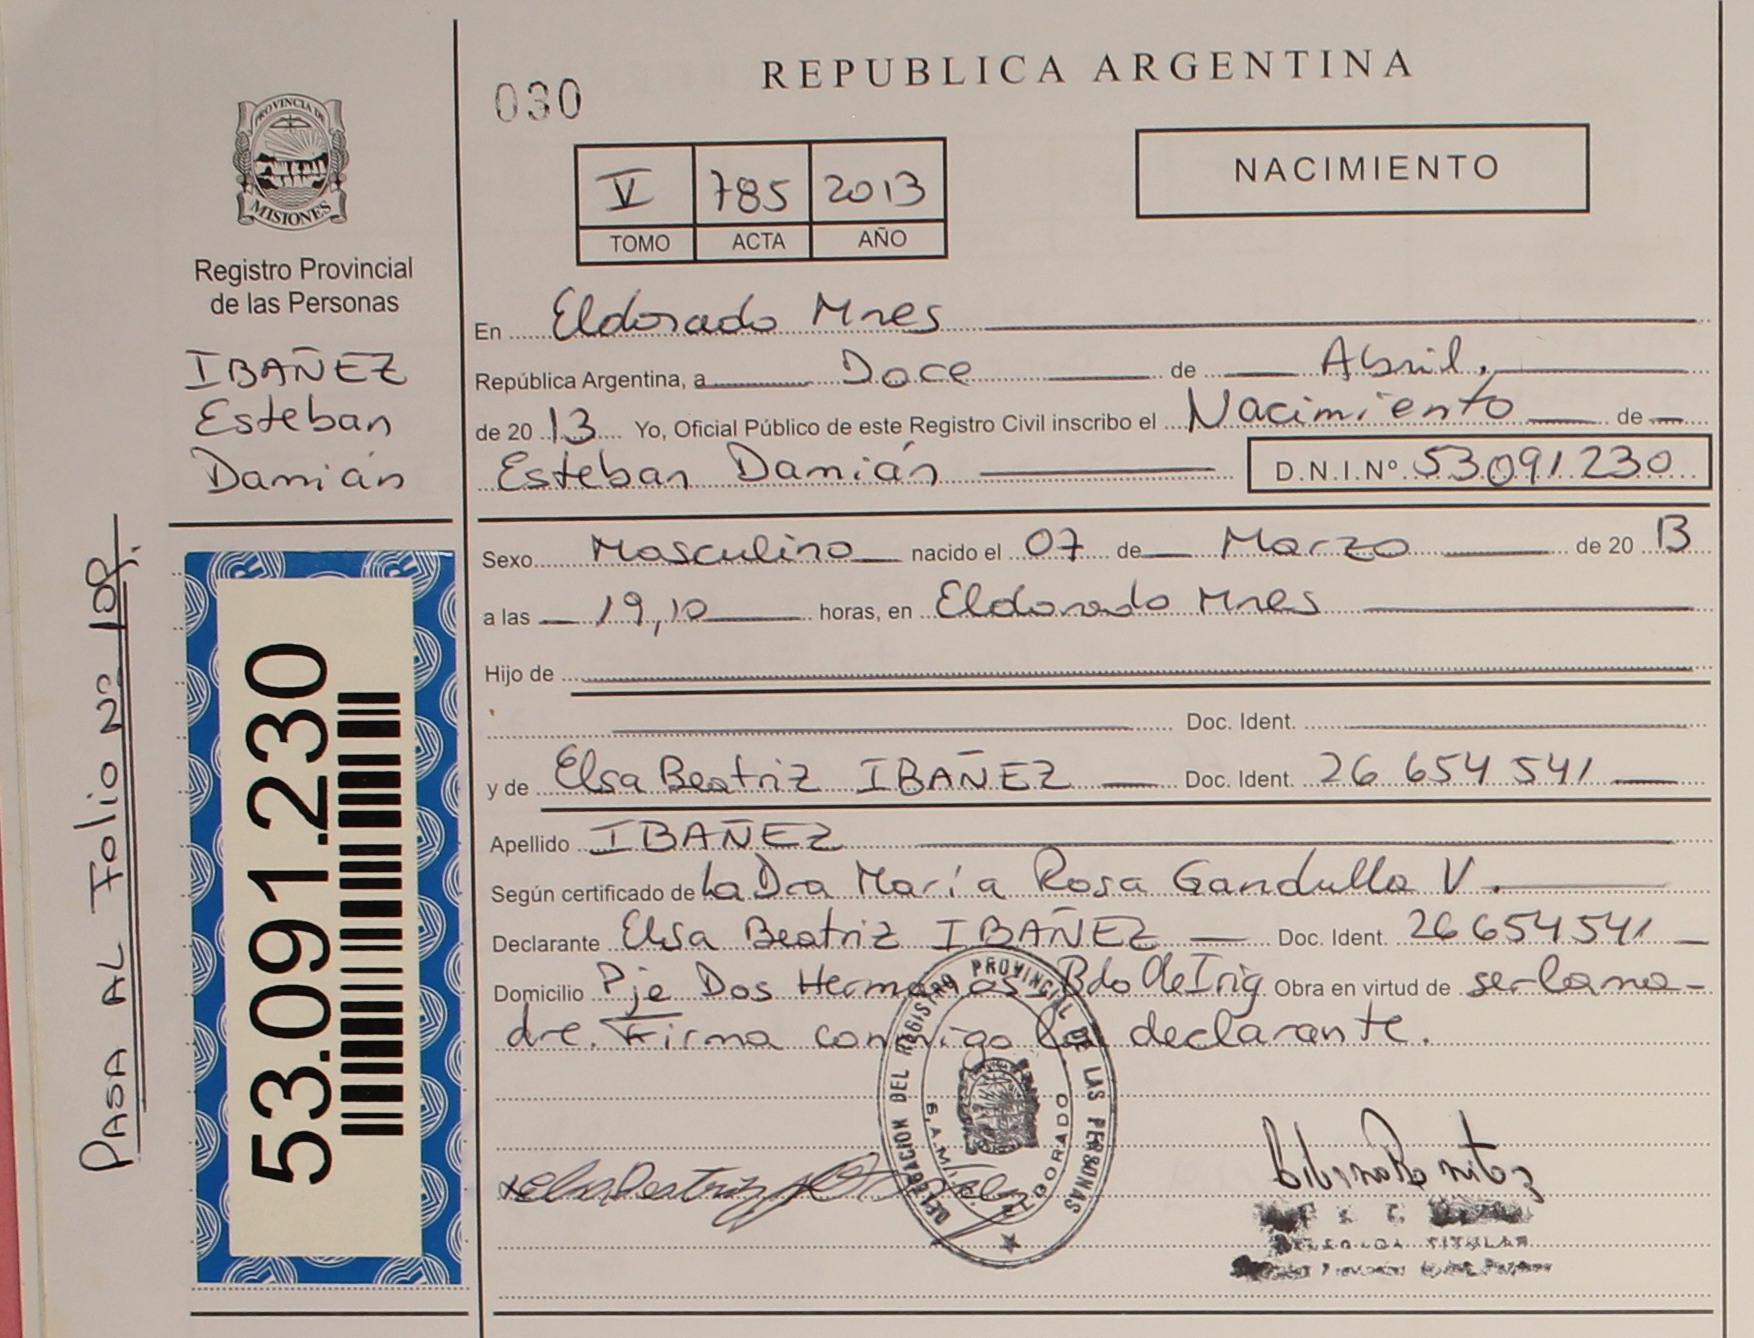 PROVINCIA DE
MISIONES
Registro Provincial
de las Personas
IBAÑEZ
Esteban
Damián
PASA AL Folio Nº 108.
53.091.230
030
REPUBLICA ARGENTINA
V 785 2013
TOMO ACTA AÑO
NACIMIENTO
En Eldorado Mnes
República Argentina, a Doce de Abril,
de 20 13 Yo, Oficial Público de este Registro Civil inscribo el Nacimiento de
Esteban Damián D.N.I.Nº 53.091.230
Sexo Masculino nacido el 07 de Marzo de 20 13
a las 19,10 horas, en Eldorado Mnes
Hijo de
Doc. Ident.
y de Elsa Beatriz IBAÑEZ Doc. Ident. 26 654 541
Apellido IBAÑEZ
Según certificado de La Dra María Rosa Gandulla V.
Declarante Elsa Beatriz IBAÑEZ Doc. Ident. 26654541
Domicilio Pje Dos Hermanas Bdo de Irig Obra en virtud de ser la ma-
dre. Firma conmigo la declarante.
DELEGACION DEL REGISTRO PROVINCIAL DE LAS PERSONAS
ELDORADO
TITULAR